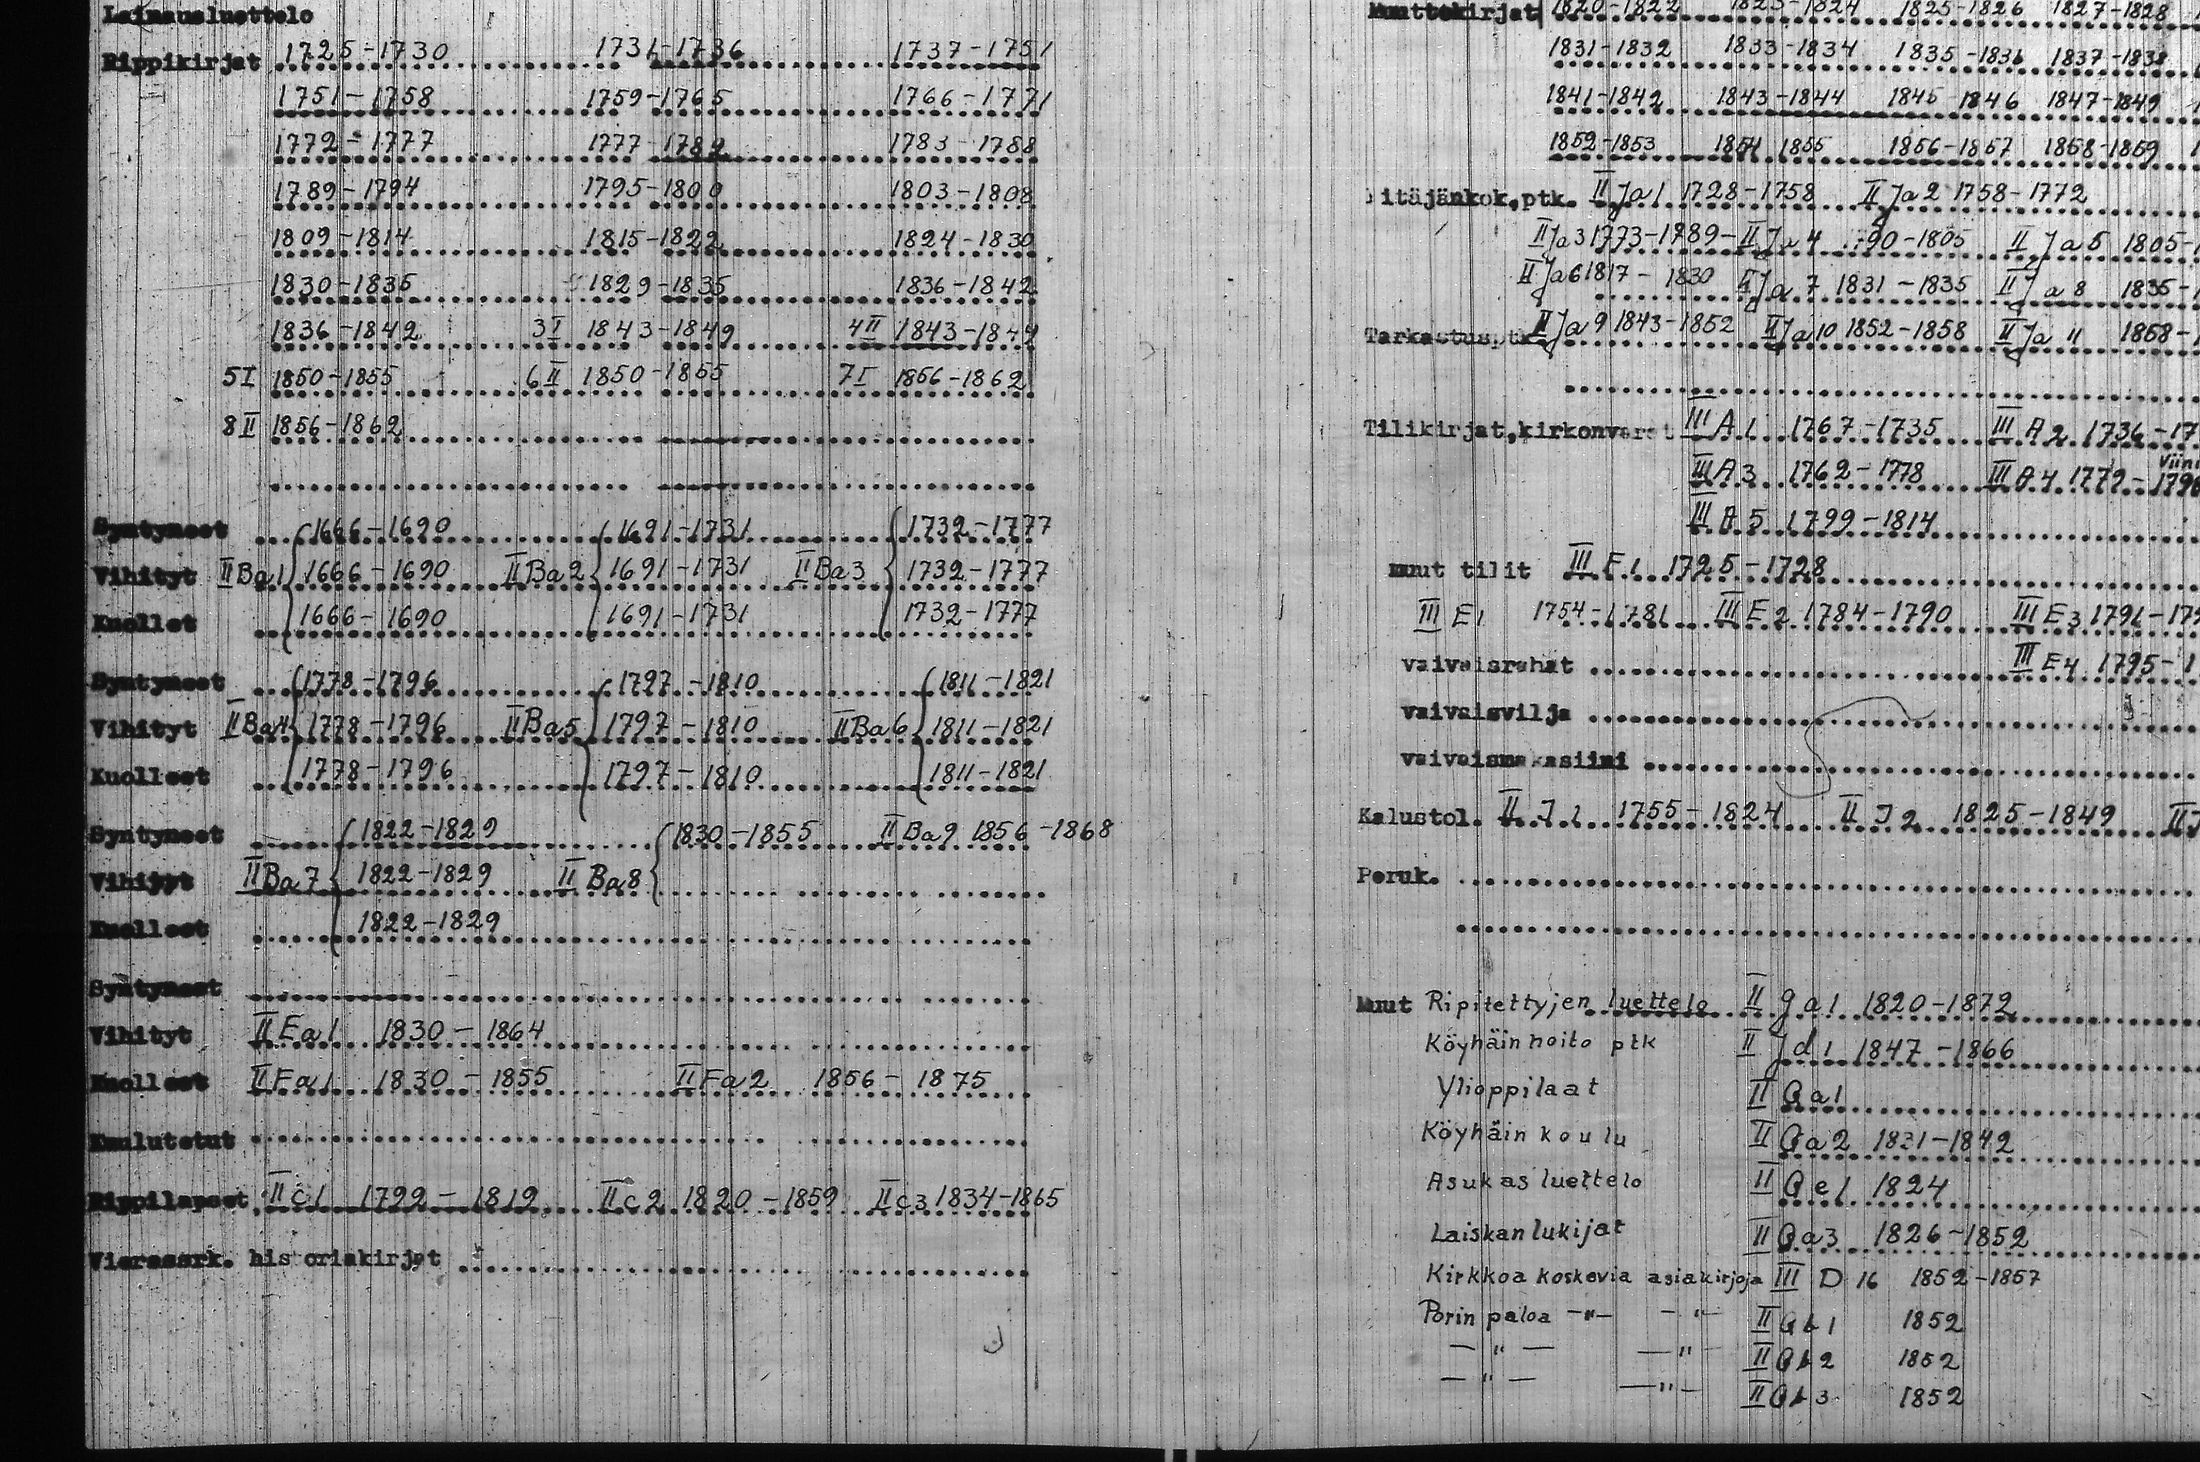 Lainausluettelo
Rippikirjat 1725-1730 1731-1736 1737-1751
1751-1758 1759-1765 1766-1771
1772-1777 1777-1782 1783-1788
1789-1794 1795-1800 1803-1808
1809-1814 1815-1822 1824-1830
1830-1835 1829-1835 1836-1842
1836-1842 3I 1843-1849 4II 1843-1849
5I 1850-1855 6II 1850-1855 7I 1856-1862
8II 1856-1862
Syntyneet 1666-1690 1691-1731 1732-1777
Vihityt IIBa1 1666-1690 IIBa2 1691-1731 IIBa3 1732-1777
Kuollet 1666-1690 1691-1731 1732-1777
Syntyneet 1778-1796 1797-1810 1811-1821
Vihityt IIBa4 1778-1796 IIBa5 1797-1810 IIBa6 1811-1821
Kuolleet 1778-1796 1797-1810 1811-1821
Syntyneet 1822-1829 1830-1855 IIBa9 1856-1868
Vihityt IIBa7 1822-1829 IIBa8
Kuolleet 1822-1829
Syntyneet
Vihityt IIEa1 1830-1864
Kuolleet IIFa1 1830-1855 IIFa2 1856-1875
Kuulutetut
Rippilapset IIC1 1792-1819 IIC2 1820-1859 IIC3 1834-1865
Vierasark. historiakirjat
Muuttokirjat 1820-1822 1823-1824 1825-1826 1827-1828
1831-1832 1833-1834 1835-1836 1837-1838
1841-1842 1843-1844 1845-1846 1847-1849
1852-1853 1854 1855 1856-1857 1858-1859
itäjänkok.ptk. II Ja1 1728-1758 II Ja2 1758-1772
II Ja3 1773-1789 II Ja4 1790-1805 II Ja5 1805-
II Ja6 1817-1830 II Ja7 1831-1835 II Ja8 1835-
Tarkastusptk. II Ja9 1843-1852 II Ja10 1852-1858 II Ja11 1858-
Tilikirjat,kirkonvarat III A1 1767-1735 III A2 1736-17
Viini
III A3 1762-1778 III A4 1772-1796
III A5 1799-1814
muut tilit III F1 1725-1728
III E1 1754-1781 III E2 1784-1790 III E3 1791-179
vaivaisrahat III E4 1795-1
vaivaisvilja
vaivaismakasiini
Kalustol. II I1 1755-1824 II I2 1825-1849 II I
Peruk.
Muut Ripitettyjen luettelo II Ja1 1820-1872
Köyhäinhoito ptk II Jd1 1847-1866
Ylioppilaat II Ga1
Köyhäin koulu II Ga2 1831-1842
Asukas luettelo II Ge1 1824
Laiskanlukijat II Ga3 1826-1852
Kirkkoa koskevia asiakirjoja III D 16 1852-1857
Porin paloa -"- -"- II Gb1 1852
-"- -"- II Gb2 1852
-"- -"- II Gb3 1852